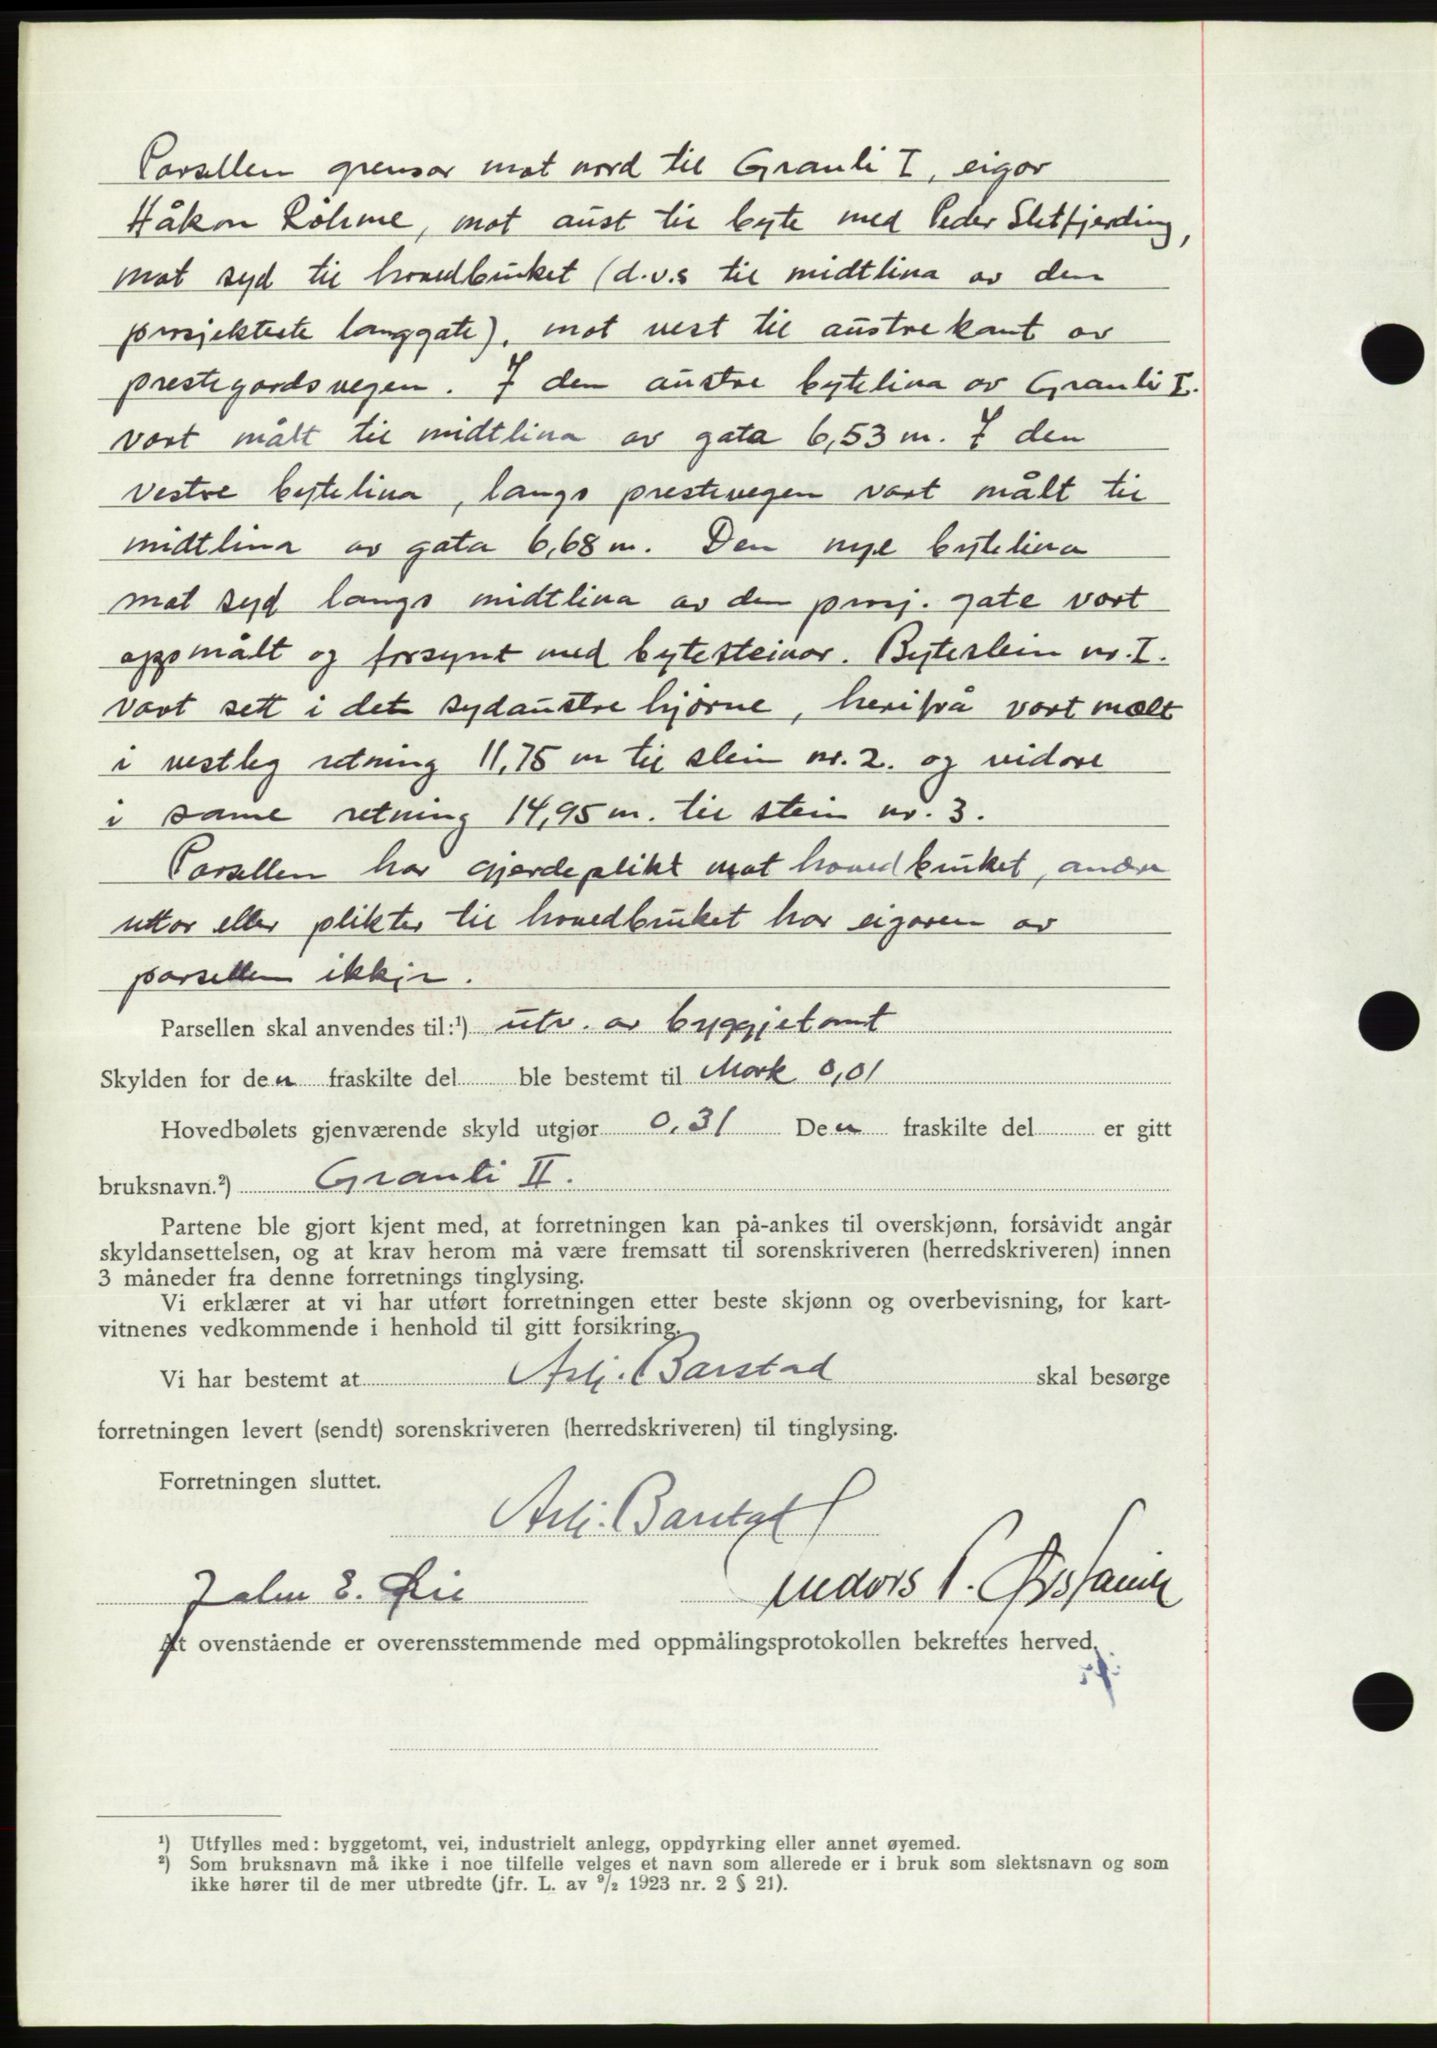 Parsellen grensar mot nord til Granli I, eigar
Håkon Röhme, mot aust til byte med Peder Sletfjerding,
mot syd til hovedbruket (d.v.s til midtlina av den
prosjekterte langgate), mot vest til austre kant av
prestegardsvegen. I den austre bytelina av Granli I.
vart målt til midtlina av gata 6,53 m. I den
vestre bytelina, langs prestevegen vart målt til
midtlina av gata 6,68 m. Den nye bytelina
mot syd langs midtlina av den prosj. gate vart
oppmålt og forsynt med bytesteinar. Bytestein nr. I.
vart sett i det sydaustre hjørne, herifrå vart målt
i vestleg retning 11,75 m til stein nr. 2. og vidare
i same retning 14,95 m. til stein nr. 3.
Parsellen har gjerdeplikt mot hovedbruket, andre
uttar eller plikter til hovedbruket har eigaren av
parsellen ikkje.
Parsellen skal anvendes til:¹) utv. av byggjetomt
Skylden for den fraskilte del ble bestemt til Mark 0,01
Hovedbølets gjenværende skyld utgjør 0,31 Den fraskilte del er gitt
bruksnavn.²) Granli II.
Partene ble gjort kjent med, at forretningen kan på-ankes til overskjønn, forsåvidt angår
skyldansettelsen, og at krav herom må være fremsatt til sorenskriveren (herredskriveren) innen
3 måneder fra denne forretnings tinglysing.
Vi erklærer at vi har utført forretningen etter beste skjønn og overbevisning, for kart-
vitnenes vedkommende i henhold til gitt forsikring.
Vi har bestemt at Aslj. Barstad skal besørge
forretningen levert (sendt) sorenskriveren (herredskriveren) til tinglysing.
Forretningen sluttet.
Aslj. Barstad
John E. Øie Anders P.
At ovenstående er overensstemmende med oppmålingsprotokollen bekreftes herved.
¹) Utfylles med: byggetomt, vei, industrielt anlegg, oppdyrking eller annet øyemed.
²) Som bruksnavn må ikke i noe tilfelle velges et navn som allerede er i bruk som slektsnavn og som
ikke hører til de mer utbredte (jfr. L. av ⁹/₂ 1923 nr. 2 § 21).